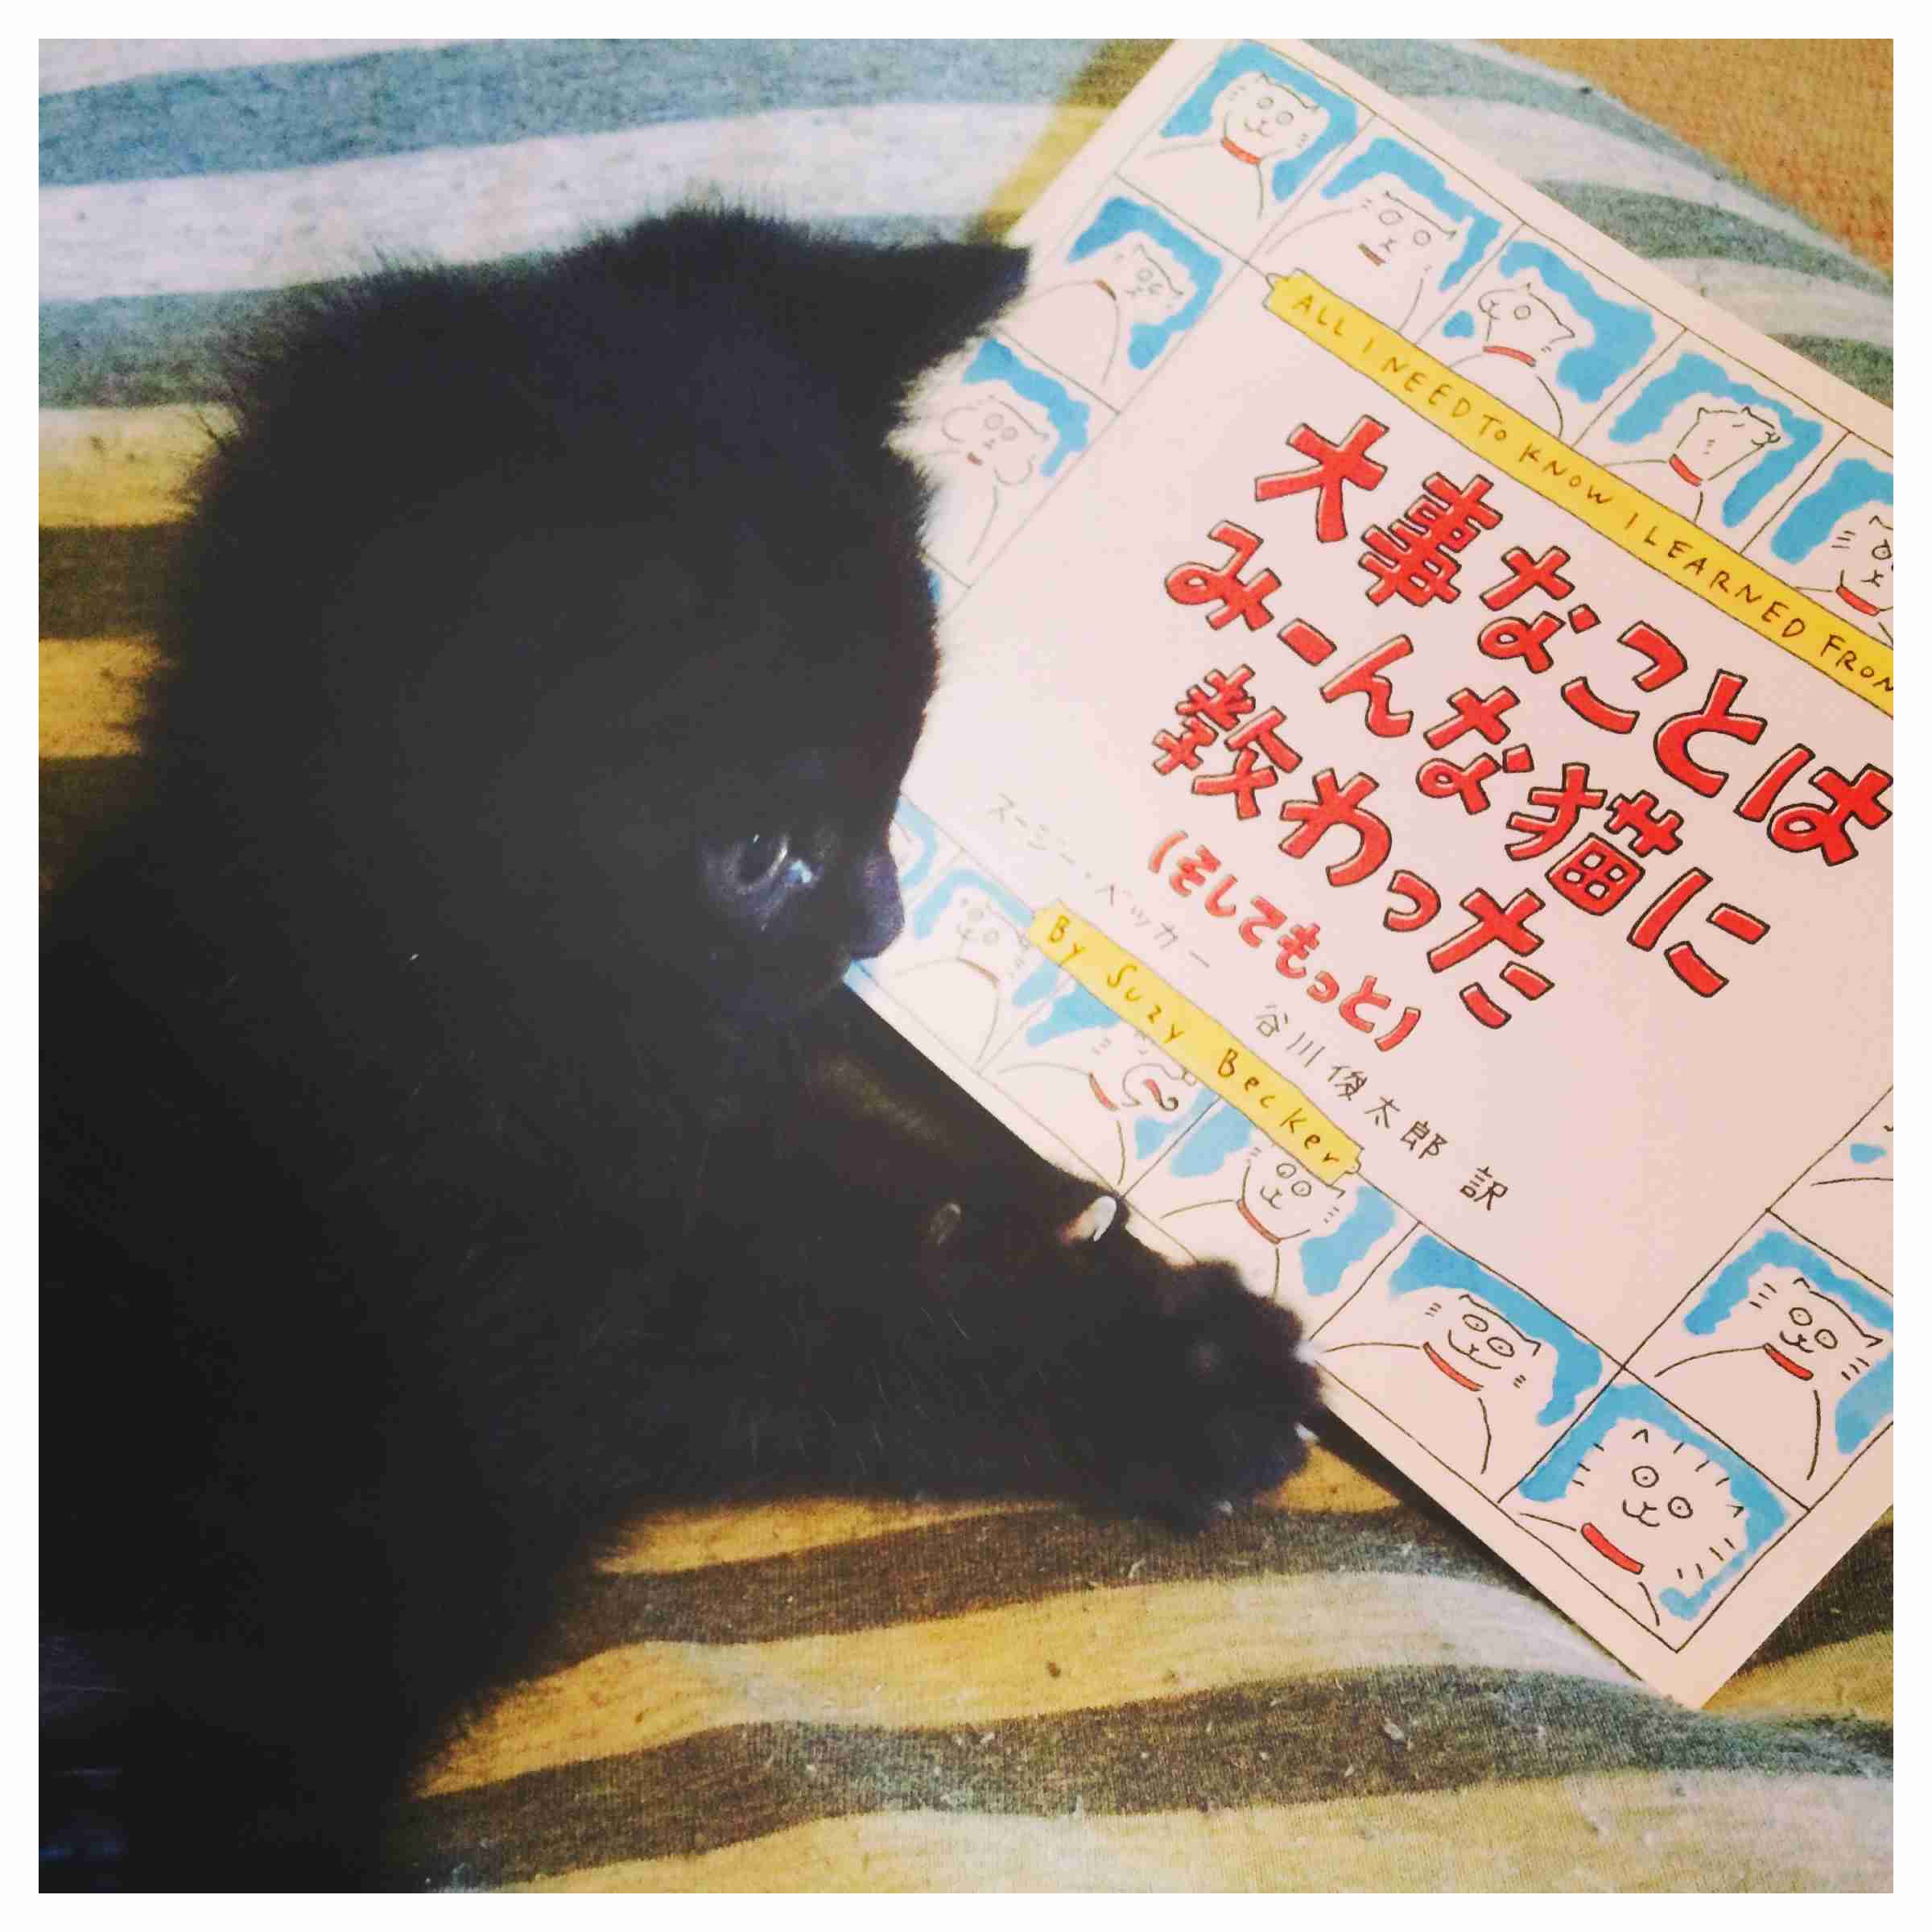 ALL I NEED TO KNOW I LEARNED FROM
大事なことは
みーんな猫に
教わった
(そしてもっと)
スージー・ベッカー 谷川俊太郎 訳
By Suzy Becker